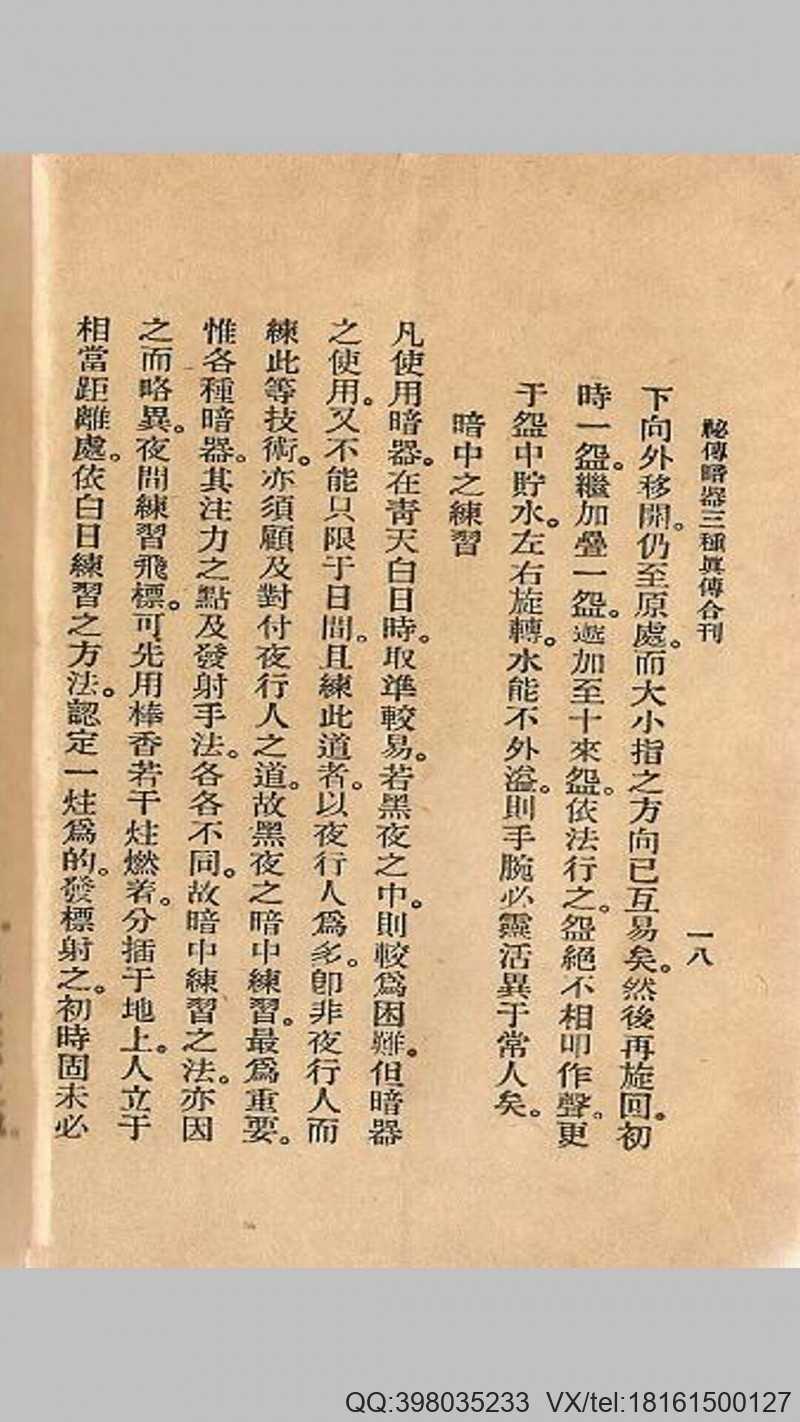 祕傳暗器三種眞傳合刊
一八
下向外移開。仍至原處。而大小指之方向已互易矣。然後再旋回。初
時一盌。繼加疊一盌。遞加至十來盌。依法行之。盌絕不相叩作聲。更
于盌中貯水。左右旋轉。水能不外溢。則手腕必靈活異于常人矣。
暗中之練習
凡使用暗器。在靑天白日時。取準較易。若黑夜之中。則較爲困難。但暗器
之使用。又不能只限于日間。且練此道者。以夜行人爲多。卽非夜行人而
練此等技術。亦須顧及對付夜行人之道。故黑夜之暗中練習。最爲重要。
惟各種暗器。其注力之點及發射手法。各各不同。故暗中練習之法。亦因
之而略異。夜間練習飛標。可先用棒香若干炷燃着。分插于地上。人立于
相當距離處。依白日練習之方法。認定一炷爲的。發標射之。初時固未必
QQ:398035233 VX/tel:18161500127